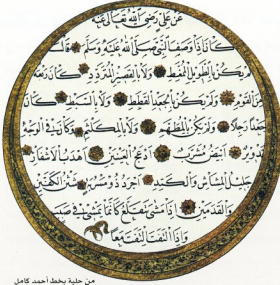 عن علي رضي الله تعالى عنه
كان إذا وصف النبي صلى الله عليه وسلم قال
لم يكن بالطويل الممغط ولا بالقصير المتردد كان ربعة
من القوم ولم يكن بالجعد القطط ولا بالسبط كان
جعدا رجلا ولم يكن بالمطهم ولا بالمكلثم وكان في الوجه
تدوير أبيض مشرب أدعج العينين أهدب الأشفار
جليل المشاش والكتد أجرد ذو مسربة شثن الكفين
والقدمين إذا مشى تقلع كأنما يمشي في صبب
وإذا التفت التفت معا
من حلية بخط أحمد كامل